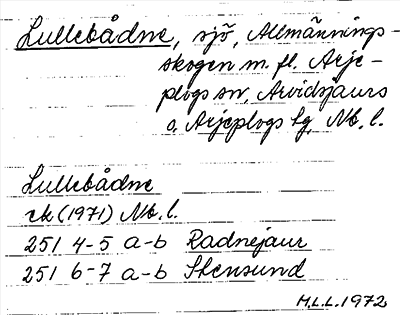 Lullebådne, sjö, Allmännings-
skogen m. fl. Arje-
plogs sn, Arvidsjaurs
o. Arjeplogs tg, Nb. l.
Lullebådne
ek (1971) Nb. l.
251 4-5 a-b Radnejaur
251 6-7 a-b Stensund
H.L.L. 1972